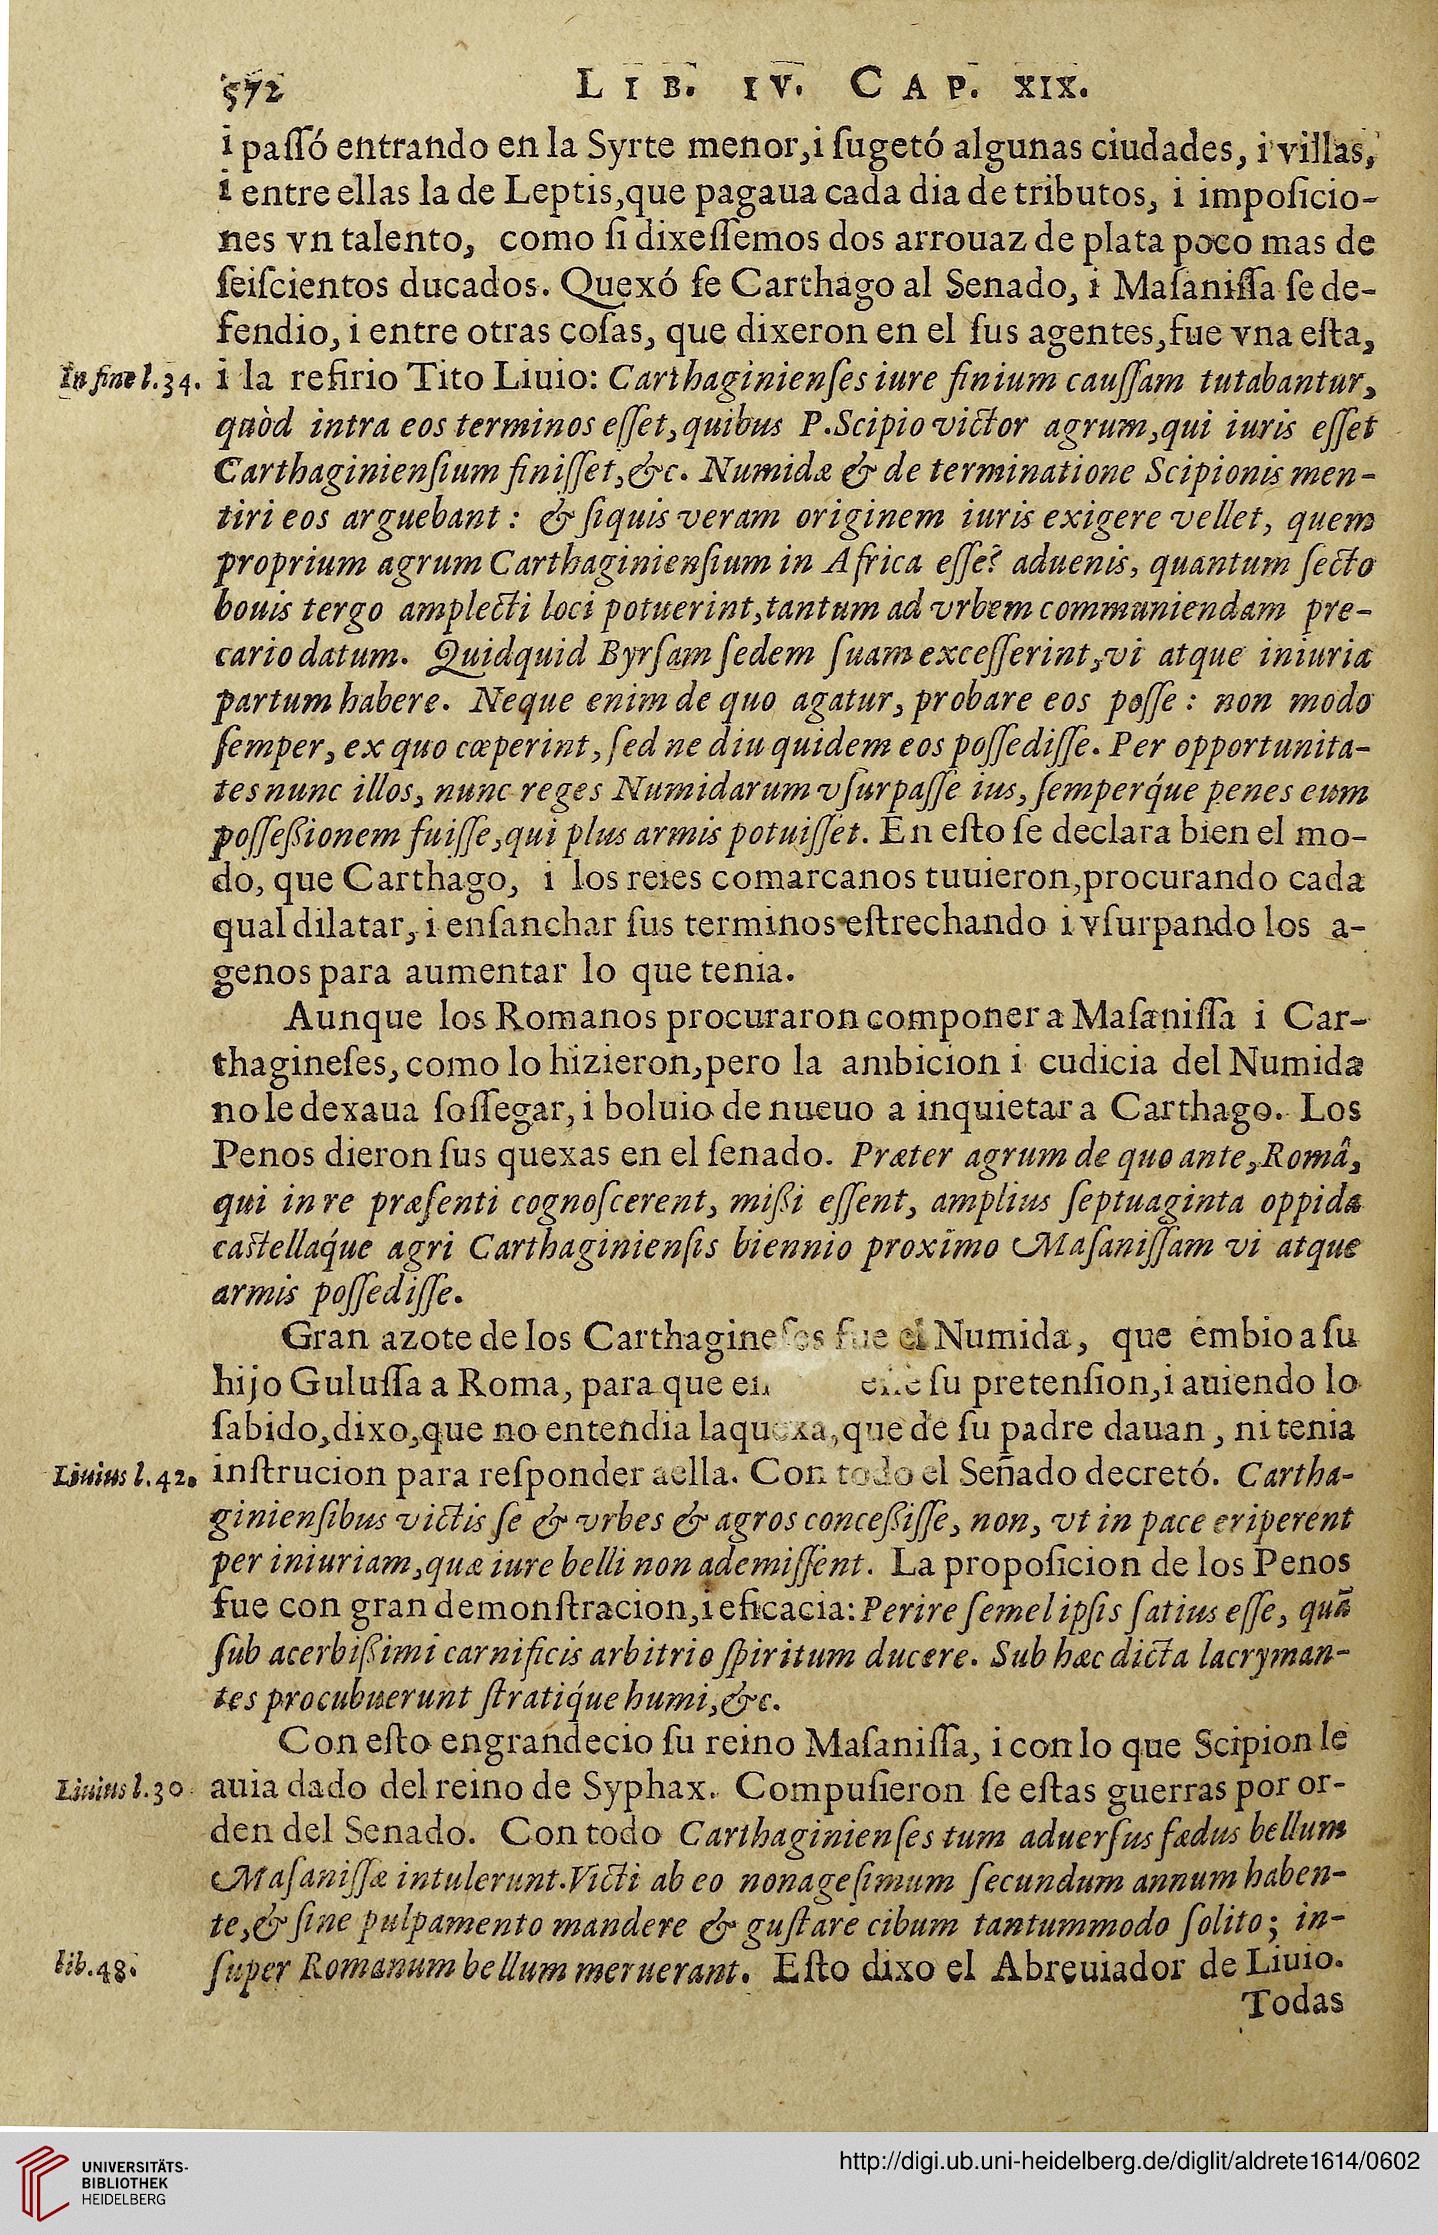 572 LIB. IV. CAP. XIX.
i passó entrando en la Syrte menor,i sugetó algunas ciudades, i villas,
i entre ellas la de Leptis,que pagaua cada dia de tributos, i imposicio-
nes vn talento, como si dixessemos dos arrouaz de plata poco mas de
seiscientos ducados. Quexó se Carthago al Senado, i Masanissa se de-
fendio, i entre otras cosas, que dixeron en el sus agentes,fue vna esta,
In fine l.34. i la refirio Tito Liuio: Carthaginienses iure finium caussam tutabantur,
quòd intra eos terminos esset,quibus P.Scipio victor agrum,qui iuris esset
Carthaginiensium finisset,&c. Numidæ & de terminatione Scipionis men-
tiri eos arguebant : & siquis veram originem iuris exigere vellet, quem
proprium agrum Carthaginiensium in Africa esse? aduenis, quantum secto
bouis tergo amplecti loci potuerint,tantum ad vrbem communiendam pre-
cario datum. Quidquid Byrsam sedem suam excesserint,vi atque iniuria
partum habere. Neque enim de quo agatur, probare eos posse : non modo
semper, ex quo cœperint, sed ne diu quidem eos possedisse. Per opportunita-
tes nunc illos, nunc reges Numidarum vsurpasse ius, semperq́ue penes eum
posseßionem fuisse,qui plus armis potuisset. En esto se declara bien el mo-
do, que Carthago, i los reies comarcanos tuuieron,procurando cada
qual dilatar, i ensanchar sus terminos estrechando i vsurpando los a-
genos para aumentar lo que tenia.
Aunque los Romanos procuraron componer a Masanissa i Car-
thagineses, como lo hizieron,pero la ambicion i cudicia del Numida
no le dexaua sossegar, i boluio de nueuo a inquietar a Carthago. Los
Penos dieron sus quexas en el senado. Præter agrum de quo ante,Româ,
qui in re præsenti cognoscerent, mißi essent, amplius septuaginta oppida
castellaq́ue agri Carthaginiensis biennio proximo Masanissam vi atque
armis possedisse.
Gran azote de los Carthagineses fue el Numida, que embio a su
hijo Gulussa a Roma, para que su pretension,i auiendo lo
sabido,dixo,que no entendia la quexa,que de su padre dauan, ni tenia
Liuius l.42. instrucion para responder a ella. Con todo el Señado decretó. Cartha-
giniensibus victis se & vrbes & agros conceßisse, non, vt in pace eriperent
per iniuriam,quæ iure belli non ademissent. La proposicion de los Penos
fue con gran demonstracion,i eficacia: Perire semel ipsis satius esse, quã
sub acerbißimi carnificis arbitrio spiritum ducere. Sub hæc dicta lacryman-
tes procubuerunt stratiq́ue humi,&c.
Con esto engrandecio su reino Masanissa, i con lo que Scipion le
Liuius l.30 auia dado del reino de Syphax. Compusieron se estas guerras por or-
den del Senado. Con todo Carthaginienses tum aduersus fædus bellum
Masanissæ intulerunt.Victi ab eo nonagesimum secundum annum haben-
te,& sine pulpamento mandere & gustare cibum tantummodo solito; in-
lib.48. super Romanum bellum meruerant. Esto dixo el Abreuiador de Liuio.
Todas
UNIVERSITÄTS-
BIBLIOTHEK
HEIDELBERG
http://digi.ub.uni-heidelberg.de/diglit/aldrete1614/0602